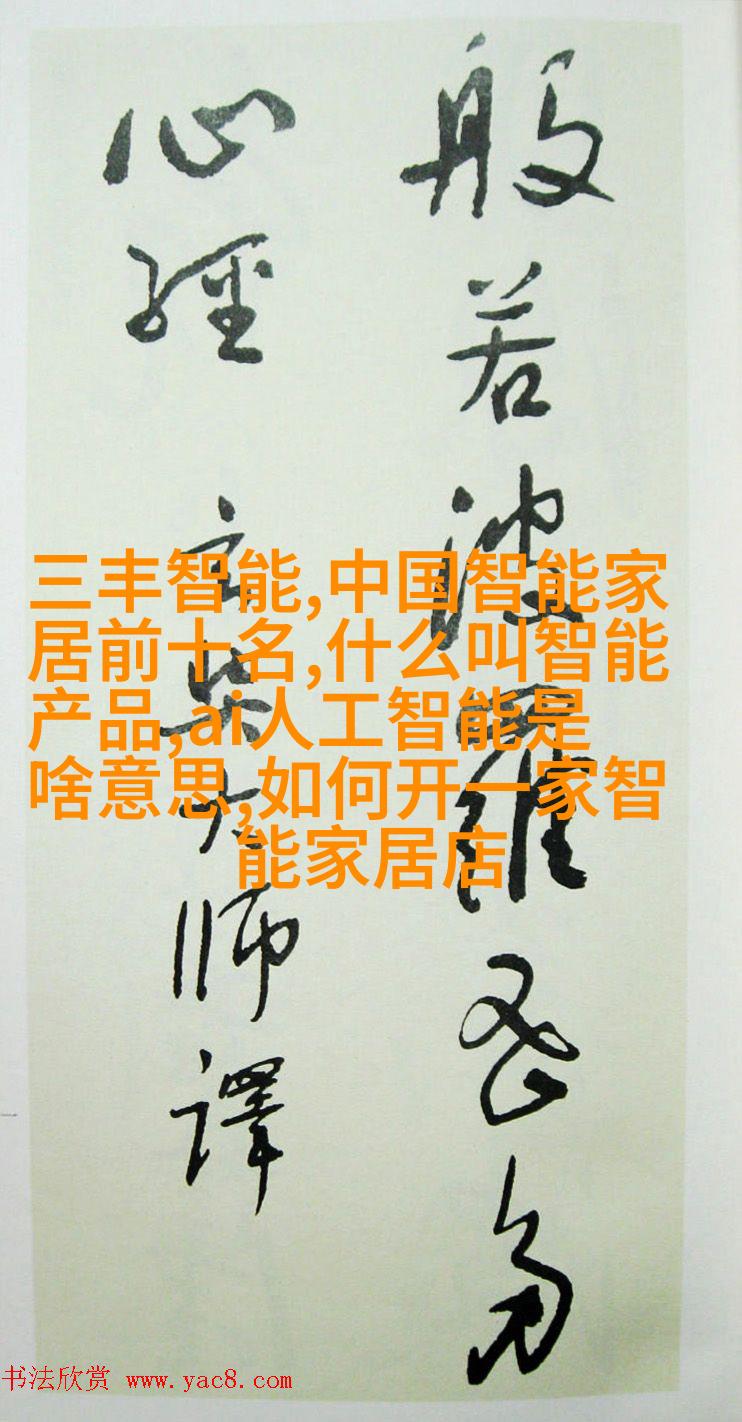 般若波羅蜜多
心經 玄奘大师譯
三丰智能,中国智能家
居前十名,什么叫智能
产品,ai人工智能是
啥意思,如何开一家智
能家居店
书法欣赏 www.yac8.com